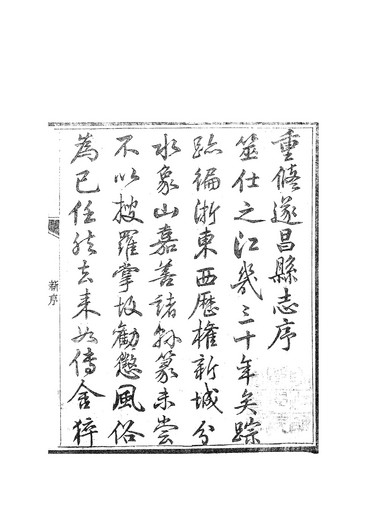 重修遂昌縣志序
筮仕之江幾三十年矣踪
跡徧浙東西歷權新城分
水象山嘉善諸縣篆未嘗
不以搜羅掌故勸懲風俗
為已任然去来如傳舍猝
新序